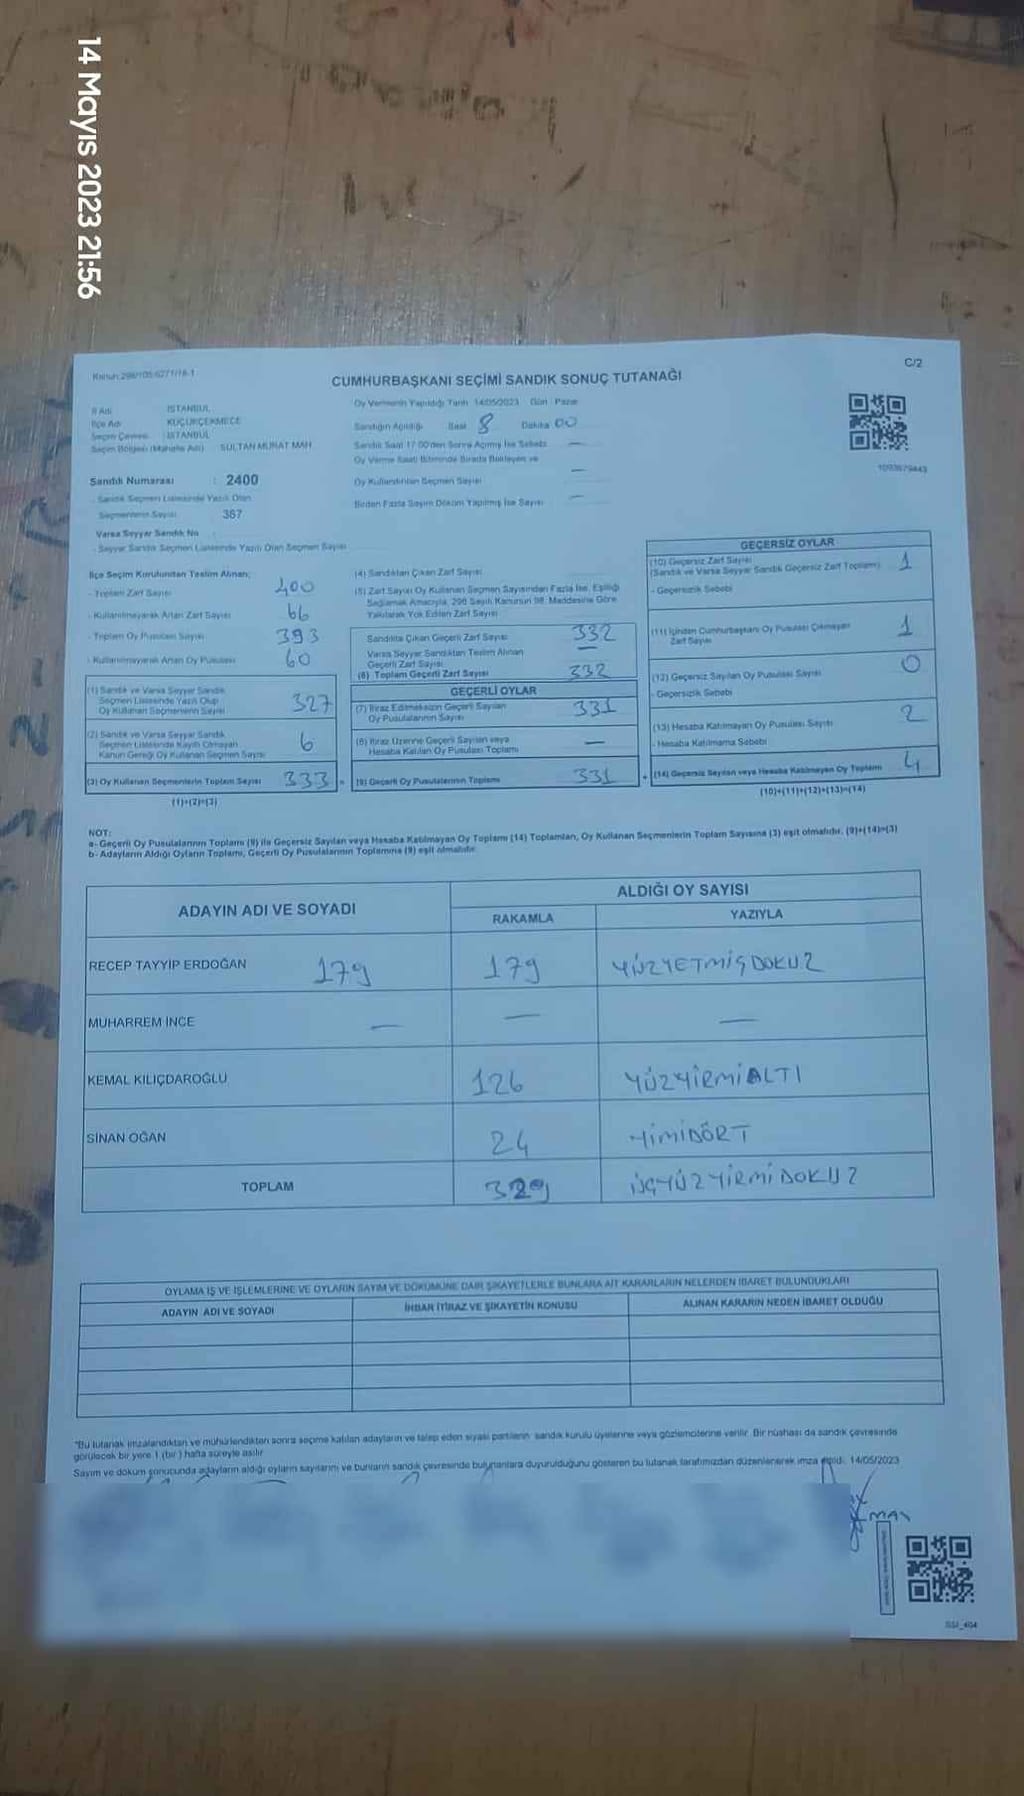 14 Mayıs 2023 21:56
Kanun:298/105-6271/18-1
C/2
CUMHURBAŞKANI SEÇİMİ SANDIK SONUÇ TUTANAĞI
İl Adı İSTANBUL
İlçe Adı KÜÇÜKÇEKMECE
Seçim Çevresi İSTANBUL
Seçim Bölgesi (Mahalle Adı) SULTAN MURAT MAH
Sandık Numarası : 2400
- Sandık Seçmen Listesinde Yazılı Olan
Seçmenlerin Sayısı 387
Varsa Seyyar Sandık No
- Seyyar Sandık Seçmen Listesinde Yazılı Olan Seçmen Sayısı
Oy Vermenin Yapıldığı Tarih 14/05/2023 Gün Pazar
Sandığın Açıldığı Saat 8 Dakika 00
Sandık Saat 17:00'den Sonra Açılmış İse Sebebi —
Oy Verme Saati Bitiminde Sırada Bekleyen ve
Oy Kullandırılan Seçmen Sayısı —
Birden Fazla Sayım Döküm Yapılmış İse Sayısı —
1093679443
İlçe Seçim Kurulundan Teslim Alınan;
- Toplam Zarf Sayısı 400
- Kullanılmayarak Artan Zarf Sayısı 66
- Toplam Oy Pusulası Sayısı 393
- Kullanılmayarak Artan Oy Pusulası 60
(1) Sandık ve Varsa Seyyar Sandık
Seçmen Listesinde Yazılı Olup
Oy Kullanan Seçmenlerin Sayısı 327
(2) Sandık ve Varsa Seyyar Sandık
Seçmen Listesinde Kayıtlı Olmayan
Kanun Gereği Oy Kullanan Seçmen Sayısı 6
(3) Oy Kullanan Seçmenlerin Toplam Sayısı 333 =
(1)+(2)=(3)
(4) Sandıktan Çıkan Zarf Sayısı
(5) Zarf Sayısı Oy Kullanan Seçmen Sayısından Fazla İse, Eşitliği
Sağlamak Amacıyla, 298 Sayılı Kanunun 98. Maddesine Göre
Yakılarak Yok Edilen Zarf Sayısı
Sandıkta Çıkan Geçerli Zarf Sayısı 332
Varsa Seyyar Sandıktan Teslim Alınan
Geçerli Zarf Sayısı —
(6) Toplam Geçerli Zarf Sayısı 332
GEÇERLİ OYLAR
(7) İtiraz Edilmeksizin Geçerli Sayılan
Oy Pusulalarının Sayısı 331
(8) İtiraz Üzerine Geçerli Sayılan veya
Hesaba Katılan Oy Pusulası Toplamı —
(9) Geçerli Oy Pusulalarının Toplamı 331 +
GEÇERSİZ OYLAR
(10) Geçersiz Zarf Sayısı
(Sandık ve Varsa Seyyar Sandık Geçersiz Zarf Toplamı) 1
- Geçersizlik Sebebi
(11) İçinden Cumhurbaşkanı Oy Pusulası Çıkmayan
Zarf Sayısı 1
(12) Geçersiz Sayılan Oy Pusulası Sayısı 0
- Geçersizlik Sebebi
(13) Hesaba Katılmayan Oy Pusulası Sayısı 2
- Hesaba Katılmama Sebebi
(14) Geçersiz Sayılan veya Hesaba Katılmayan Oy Toplamı 4
(10)+(11)+(12)+(13)=(14)
NOT:
a- Geçerli Oy Pusulalarının Toplamı (9) ile Geçersiz Sayılan veya Hesaba Katılmayan Oy Toplamı (14) Toplamları, Oy Kullanan Seçmenlerin Toplam Sayısına (3) eşit olmalıdır. (9)+(14)=(3)
b- Adayların Aldığı Oyların Toplamı, Geçerli Oy Pusulalarının Toplamına (9) eşit olmalıdır.
ADAYIN ADI VE SOYADI
ALDIĞI OY SAYISI
RAKAMLA YAZIYLA
RECEP TAYYİP ERDOĞAN 179 179 YÜZYETMİŞDOKUZ
MUHARREM İNCE — — —
KEMAL KILIÇDAROĞLU 126 YÜZYİRMİALTI
SİNAN OĞAN 24 YİMİDÖRT
TOPLAM 329 ÜÇYÜZYİRMİDOKUZ
OYLAMA İŞ VE İŞLEMLERİNE VE OYLARIN SAYIM VE DÖKÜMÜNE DAİR ŞİKAYETLERLE BUNLARA AİT KARARLARIN NELERDEN İBARET BULUNDUKLARI
ADAYIN ADI VE SOYADI İHBAR İTİRAZ VE ŞİKAYETİN KONUSU ALINAN KARARIN NEDEN İBARET OLDUĞU
"Bu tutanak imzalandıktan ve mühürlendikten sonra seçime katılan adayların ve talep eden siyasi partilerin sandık kurulu üyelerine veya gözlemcilerine verilir. Bir nüshası da sandık çevresinde
görülecek bir yere 1 (bir) hafta süreyle asılır.
Sayım ve döküm sonucunda adayların aldığı oyların sayılarını ve bunların sandık çevresinde bulunanlara duyurulduğunu gösteren bu tutanak tarafımızdan düzenlenerek imza edildi. 14/05/2023